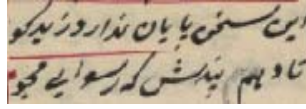 این سخن پایان ندارد زید کو
تا دهم پندش که رسوایی مجو